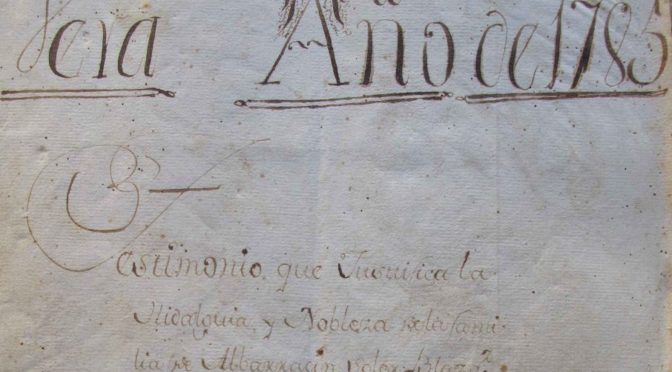 era Año de 1785
Testimonio, que Jusuifica la
Hidalguia, y Nobleza de la fami
lia de Albarracin